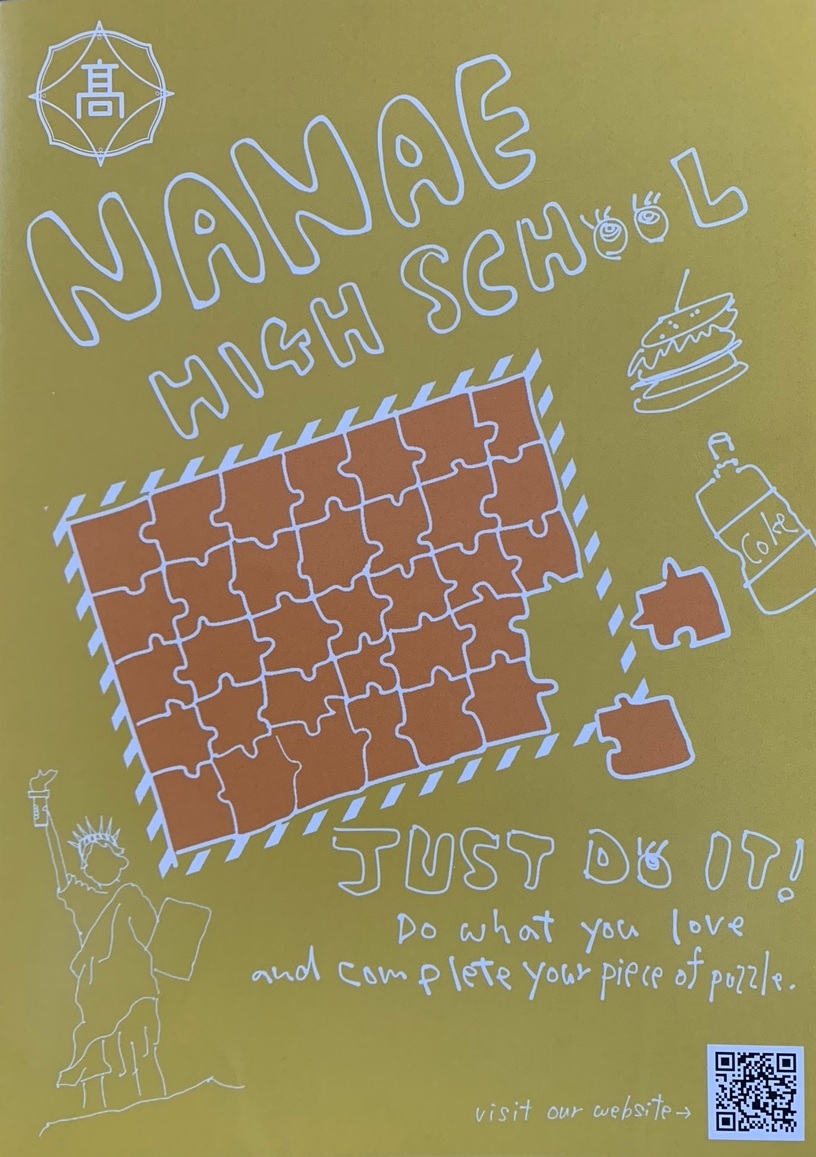 高
NANAE
HIGH SCHOOL
Coke
JUST DO IT!
Do what you love
and complete your piece of puzzle.
visit our website→